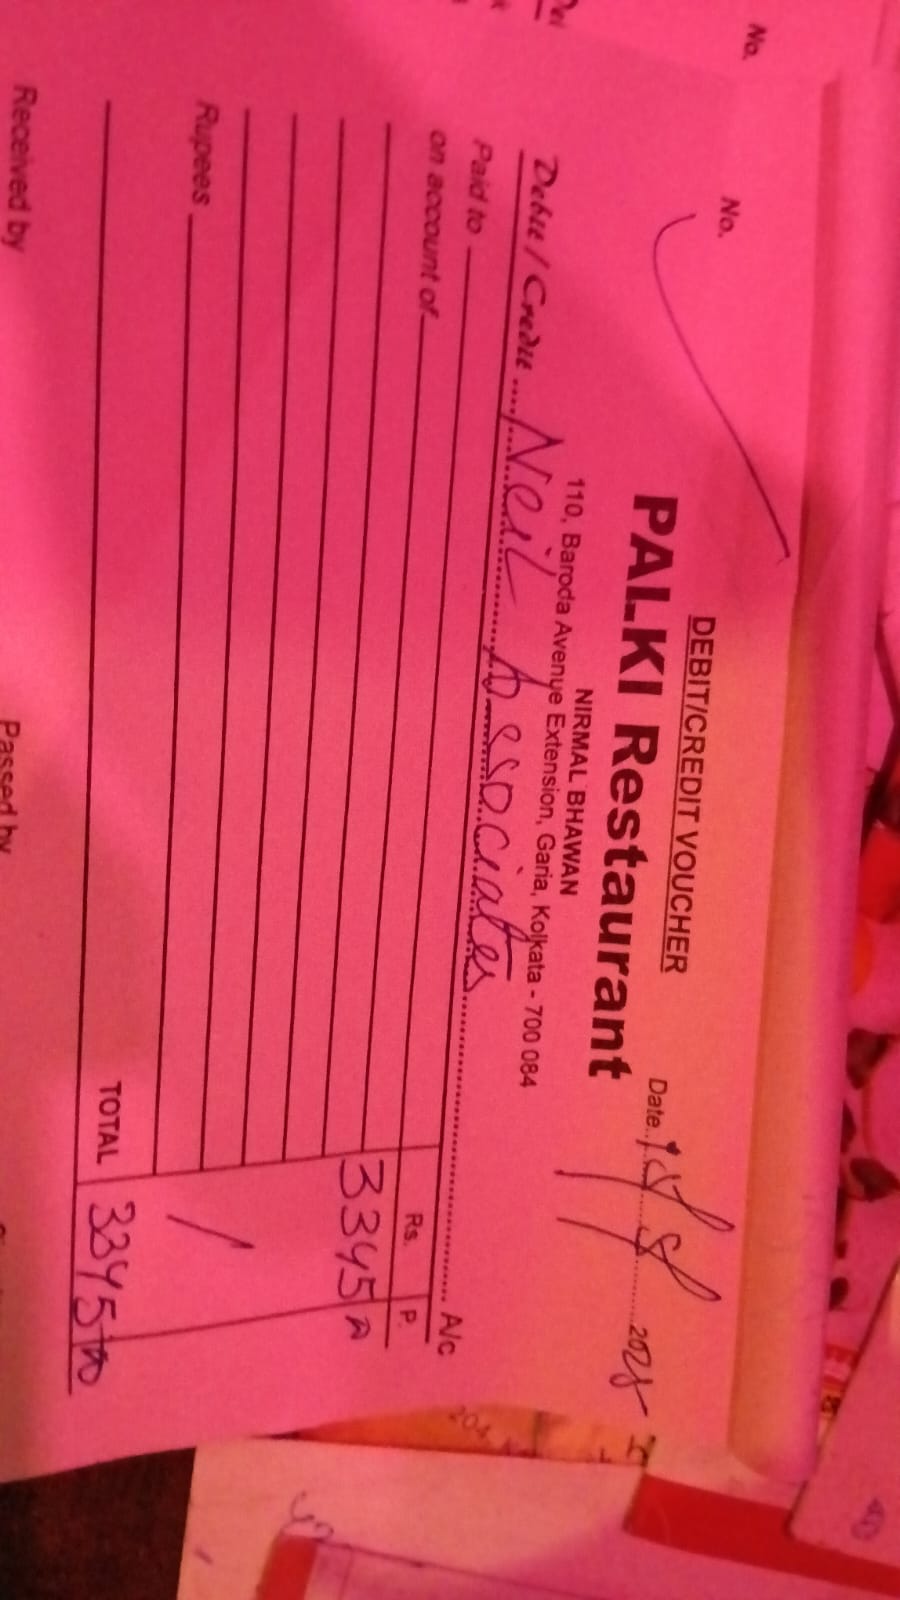 No.
No.
DEBIT/CREDIT VOUCHER
PALKI Restaurant
Date
NIRMAL BHAWAN
110, Baroda Avenue Extension, Garia, Kolkata - 700 084
Debit / Credit Neil Associates A/c
Paid to
on account of
Rs. P.
3345
Rupees
TOTAL 3345 00
Received by
Passed by